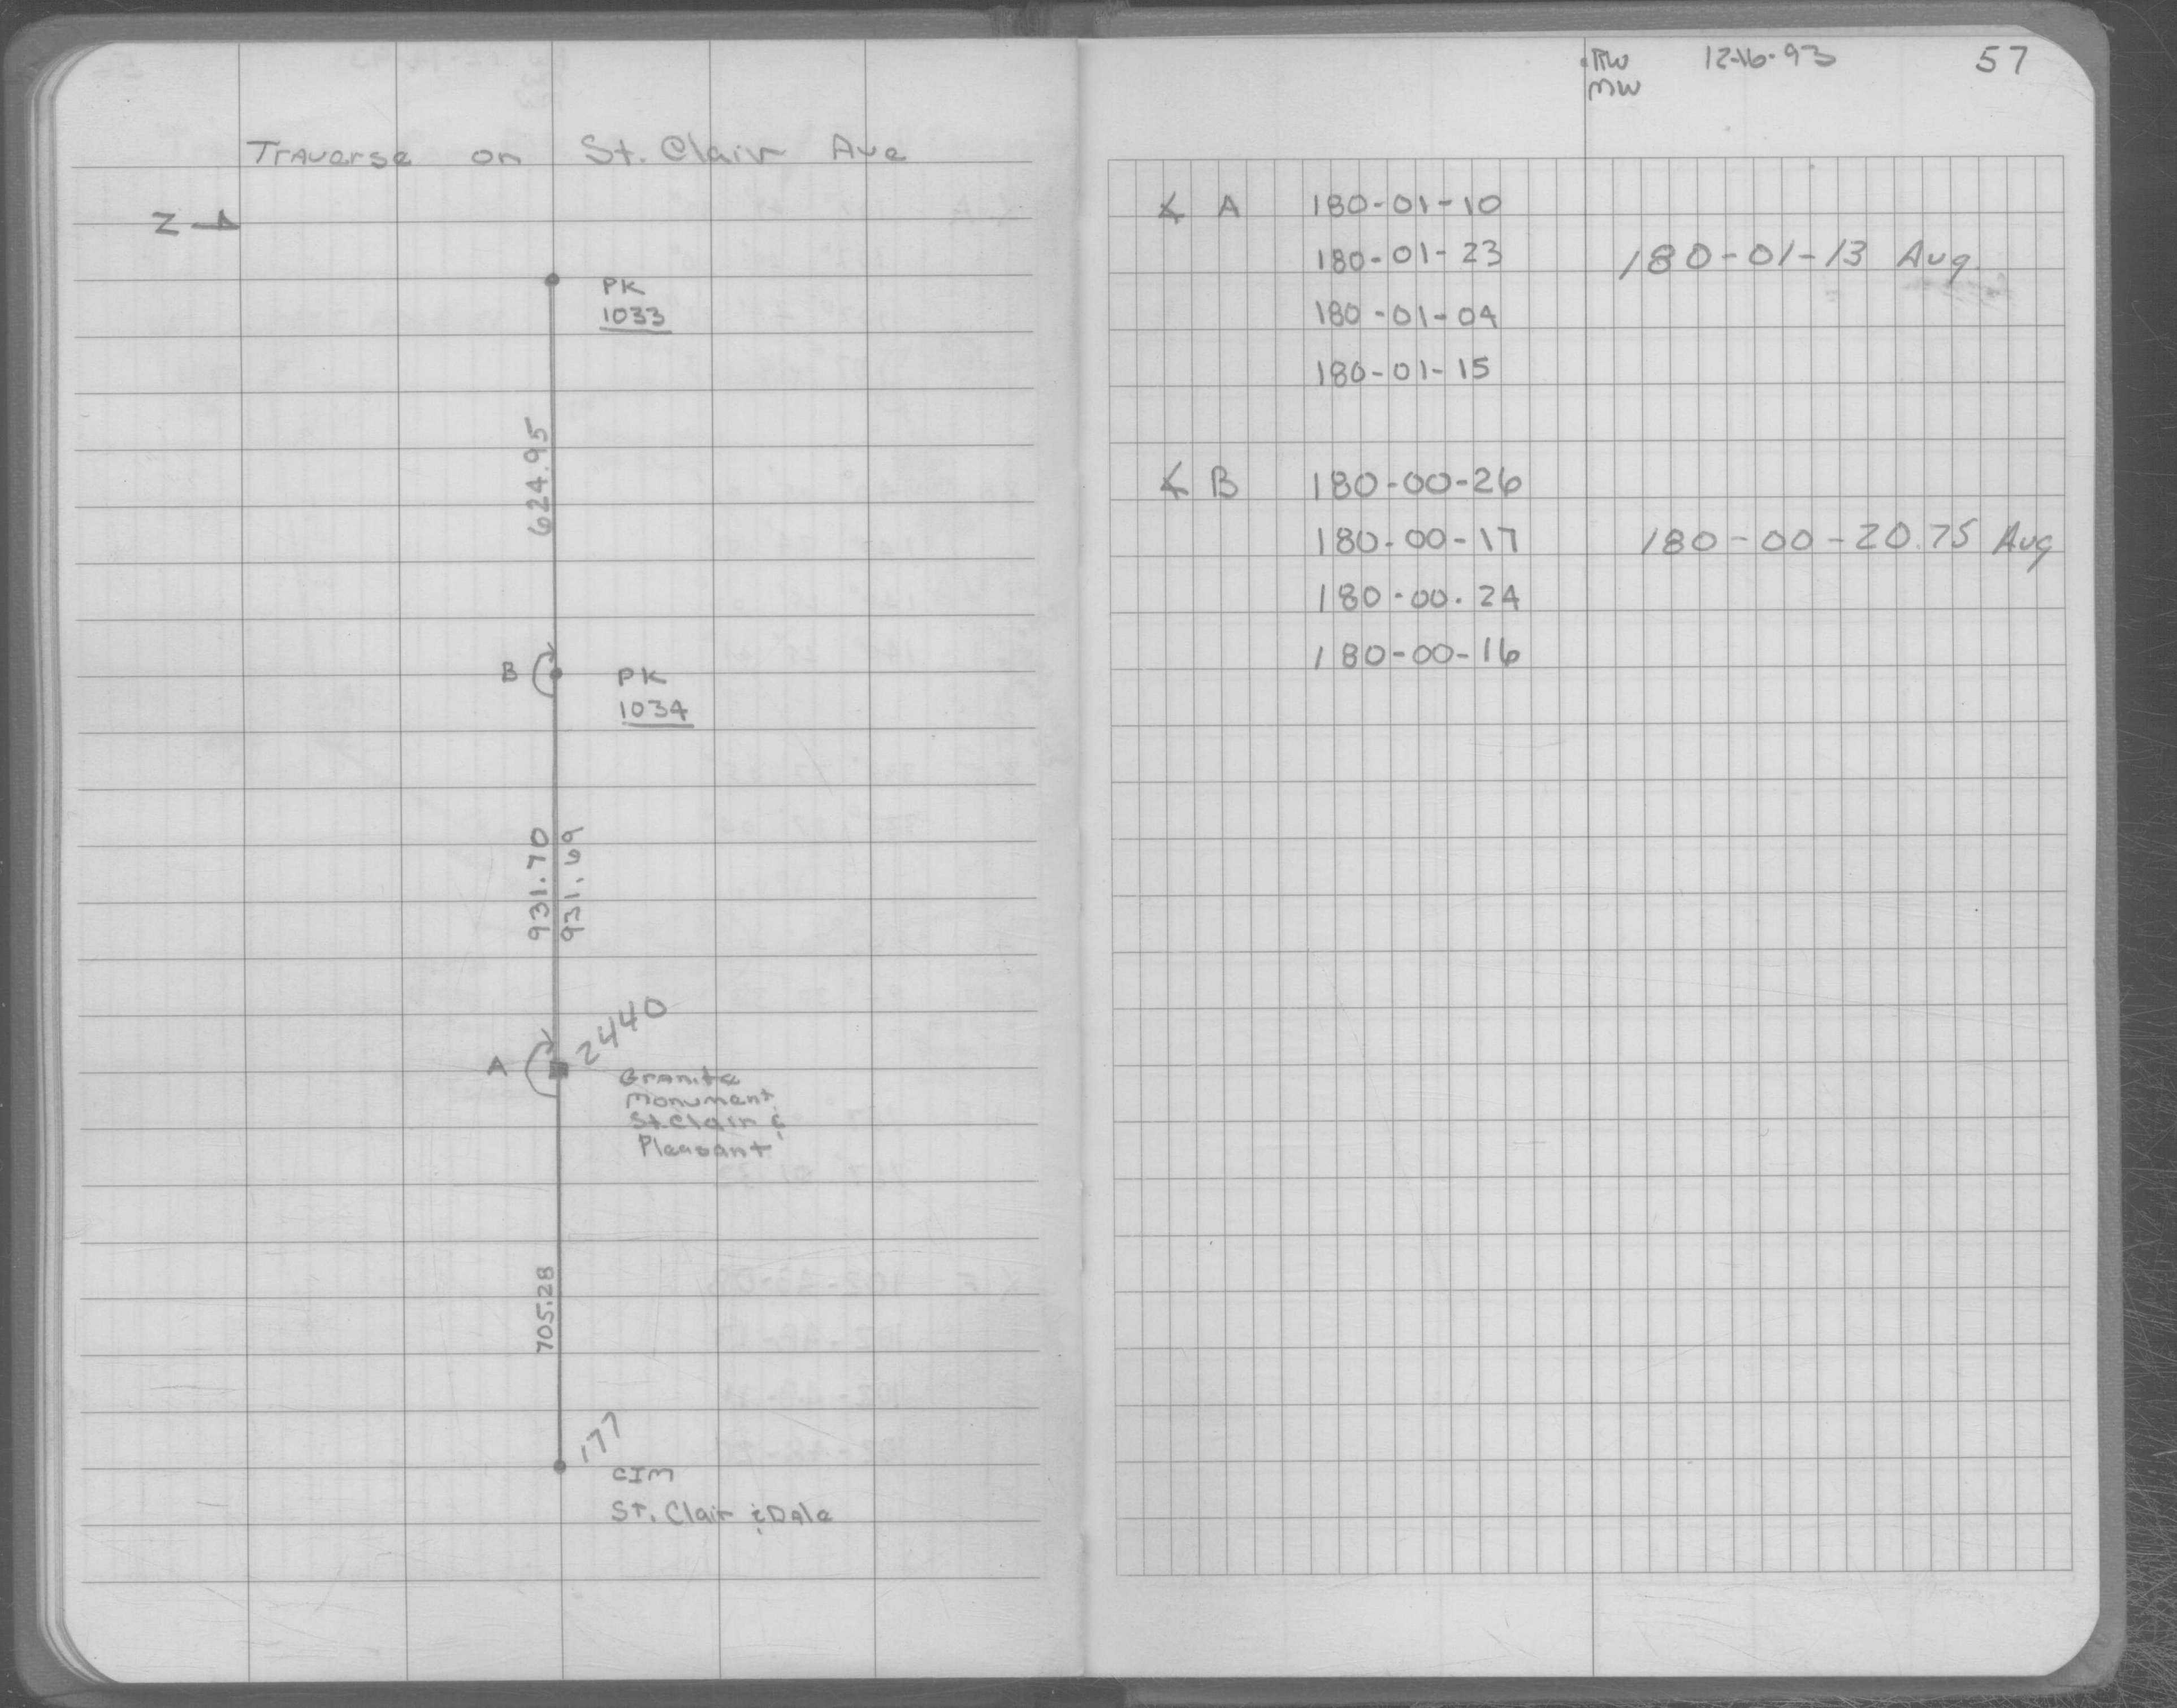 Traverse on St. Clair Ave
Z
PK
1033
624.95
B
PK
1034
931.70
931.69
2440
A
Granite
Monument
St. Clair &
Pleasant
705.28
177
CIM
St. Clair & Dale
RW 12-16-93 57
MW
∡ A 180-01-10
180-01-23 180-01-13 Avg.
180-01-04
180-01-15
∡ B 180-00-26
180-00-17 180-00-20.75 Avg
180-00-24
180-00-16